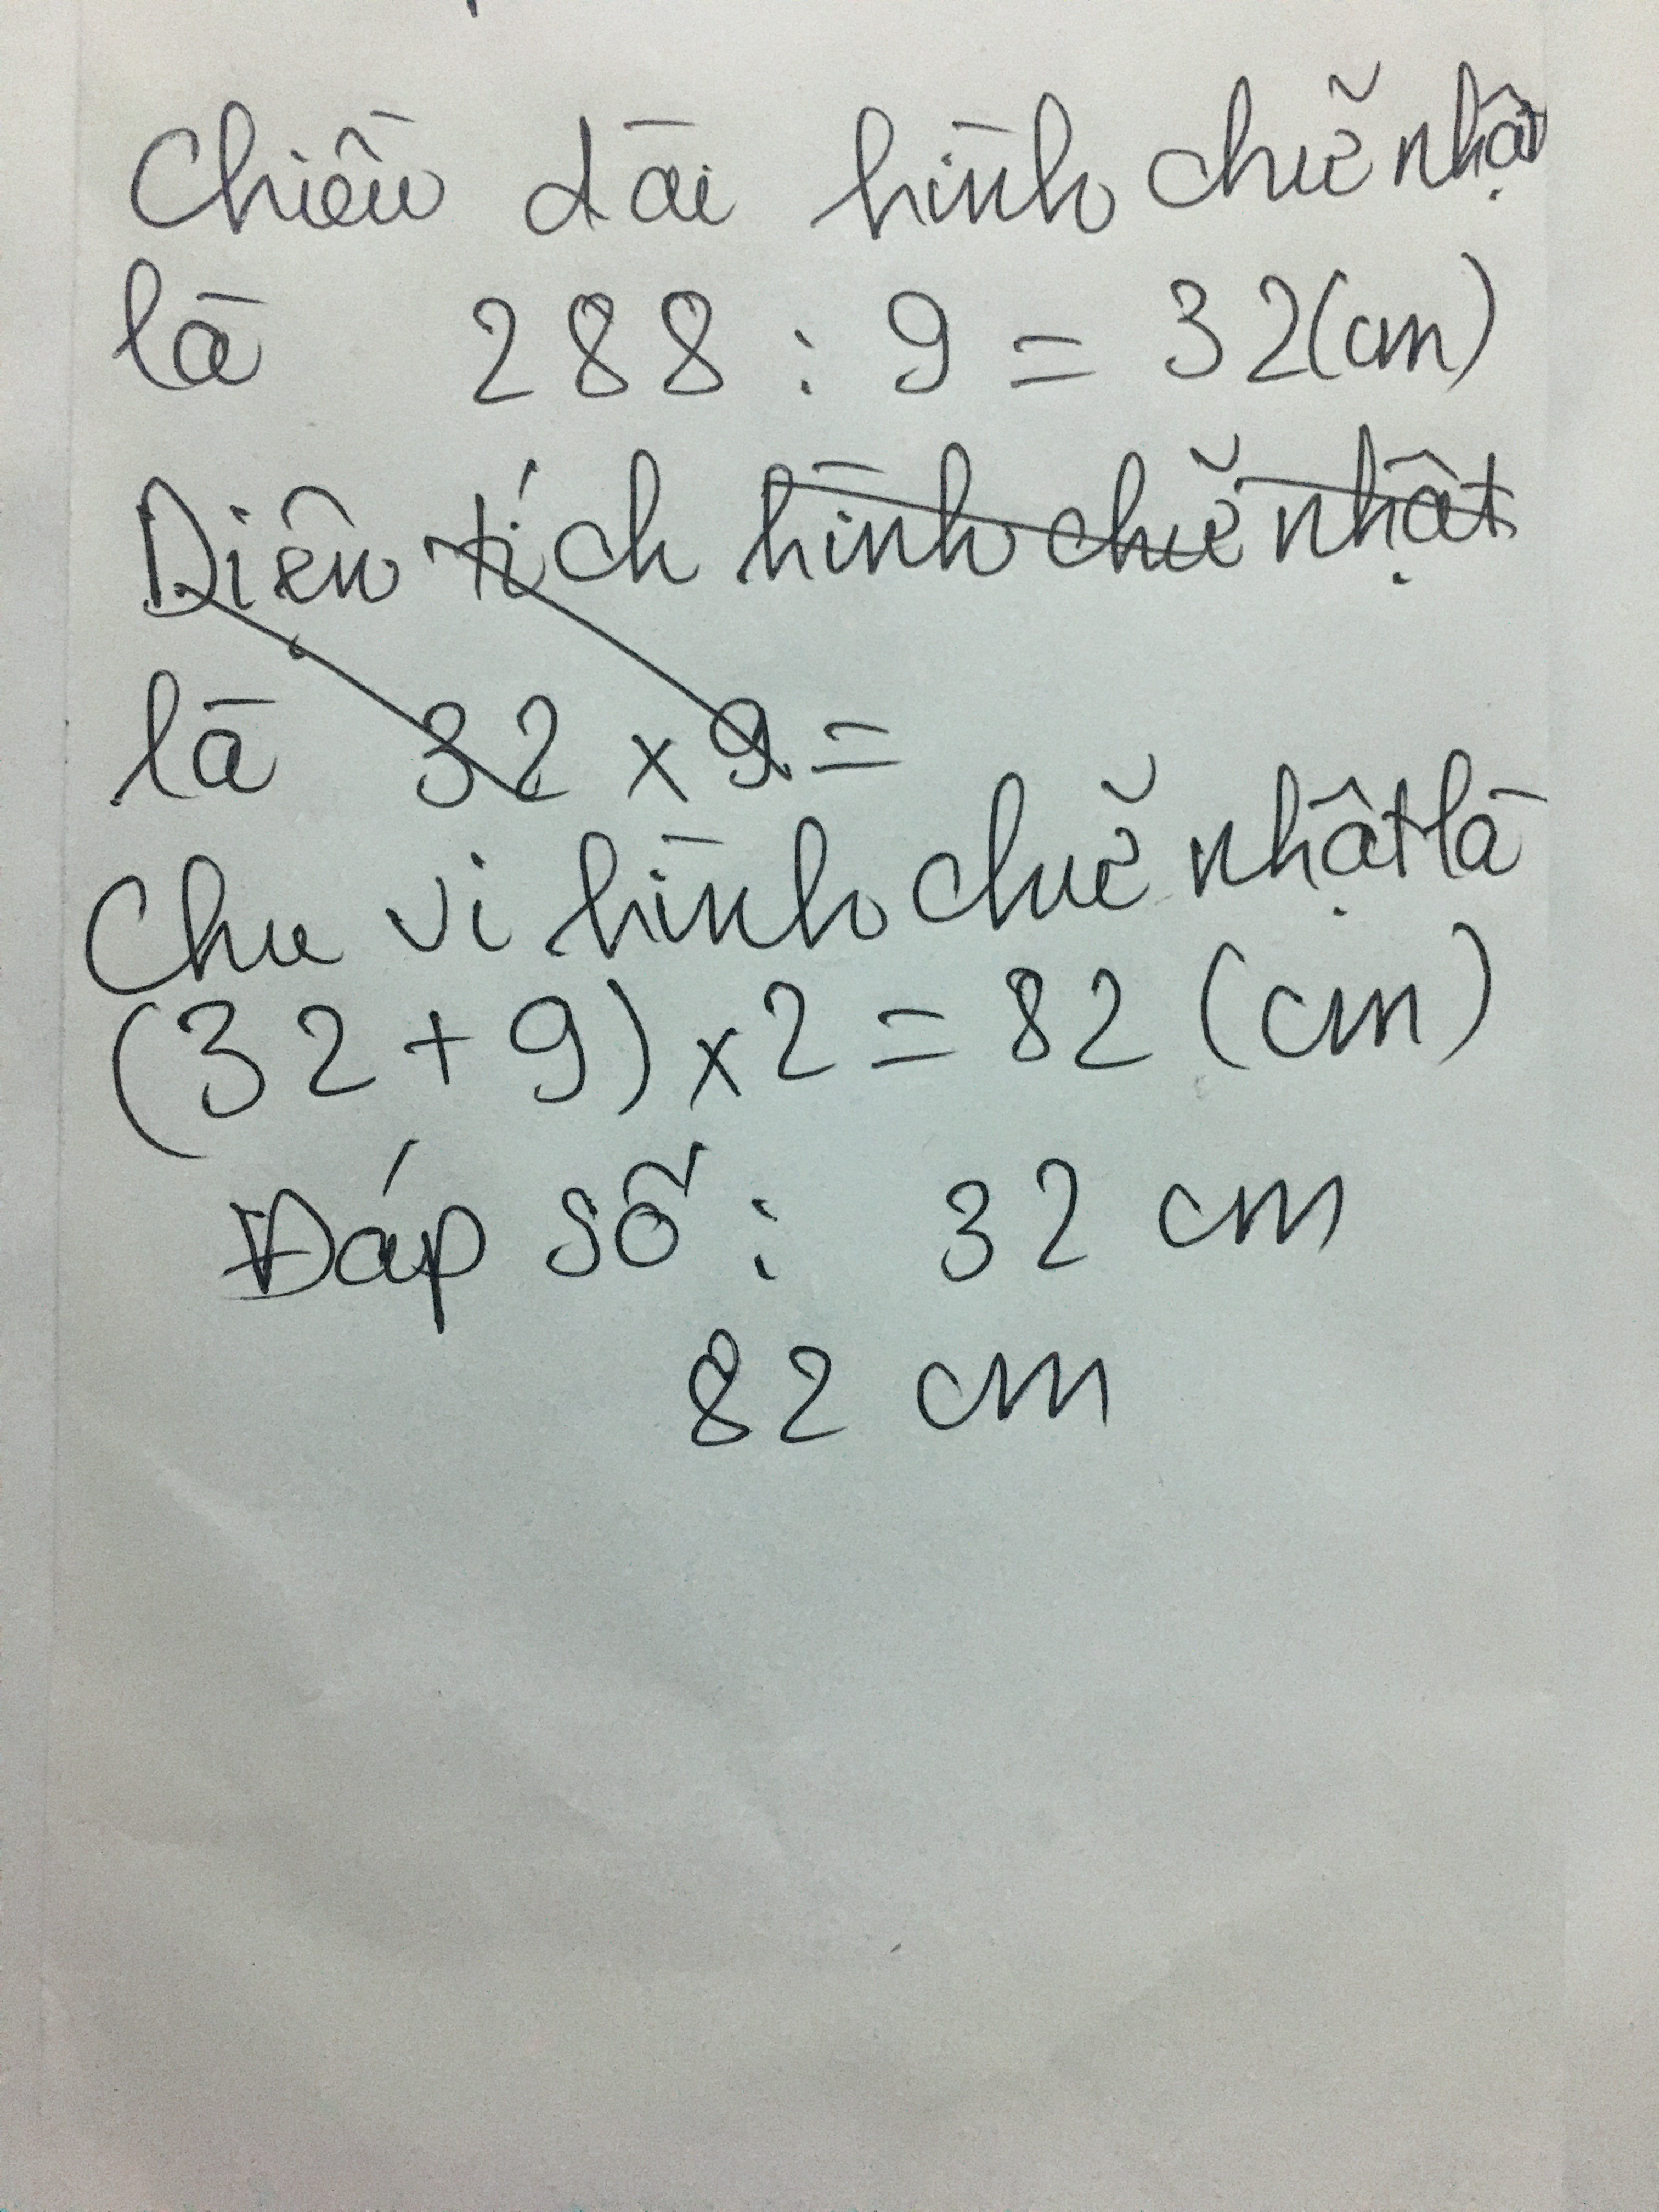 Chiều dài hình chữ nhật
là 288 : 9 = 32 (cm)
Diện tích hình chữ nhật
là 32 x 9 =
Chu vi hình chữ nhật là
(32 + 9) x 2 = 82 (cm)
Đáp số : 32 cm
82 cm